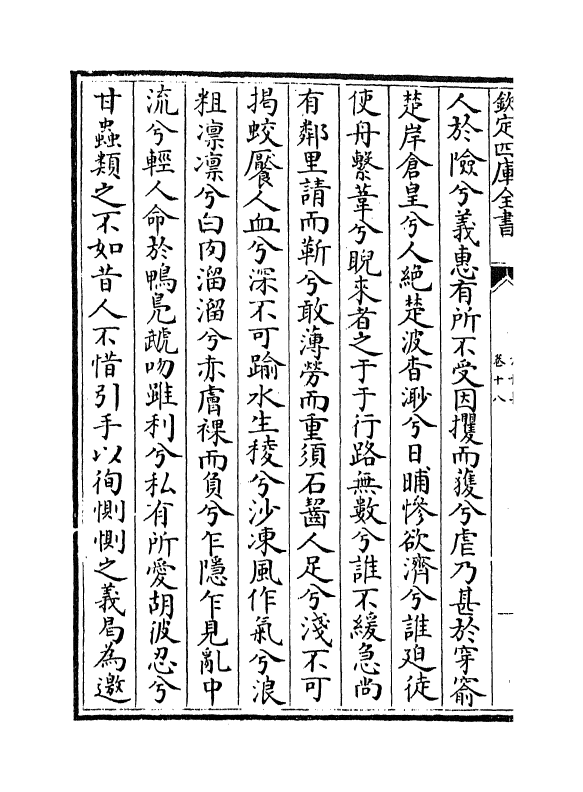 欽定四庫全書
卷十八
人於險兮義惠有所不受因攫而獲兮虐乃甚於穿窬
楚岸倉皇兮人絶楚波杳渺兮日晡慘欲濟兮誰廹徒
使舟繫葦兮睨來者之于于行路無數兮誰不緩急尚
有鄰里請而靳兮敢薄勞而重須石齧人足兮淺不可
揭蛟饜人血兮深不可踰水生稜兮沙凍風作氣兮浪
粗凛凛兮白肉溜溜兮赤膚裸而負兮乍隱乍見亂中
流兮輕人命於鴨鳬虣吻雖利兮私有所愛胡彼忍兮
甘蟲類之不如昔人不惜引手以徇惻惻之義曷為邀